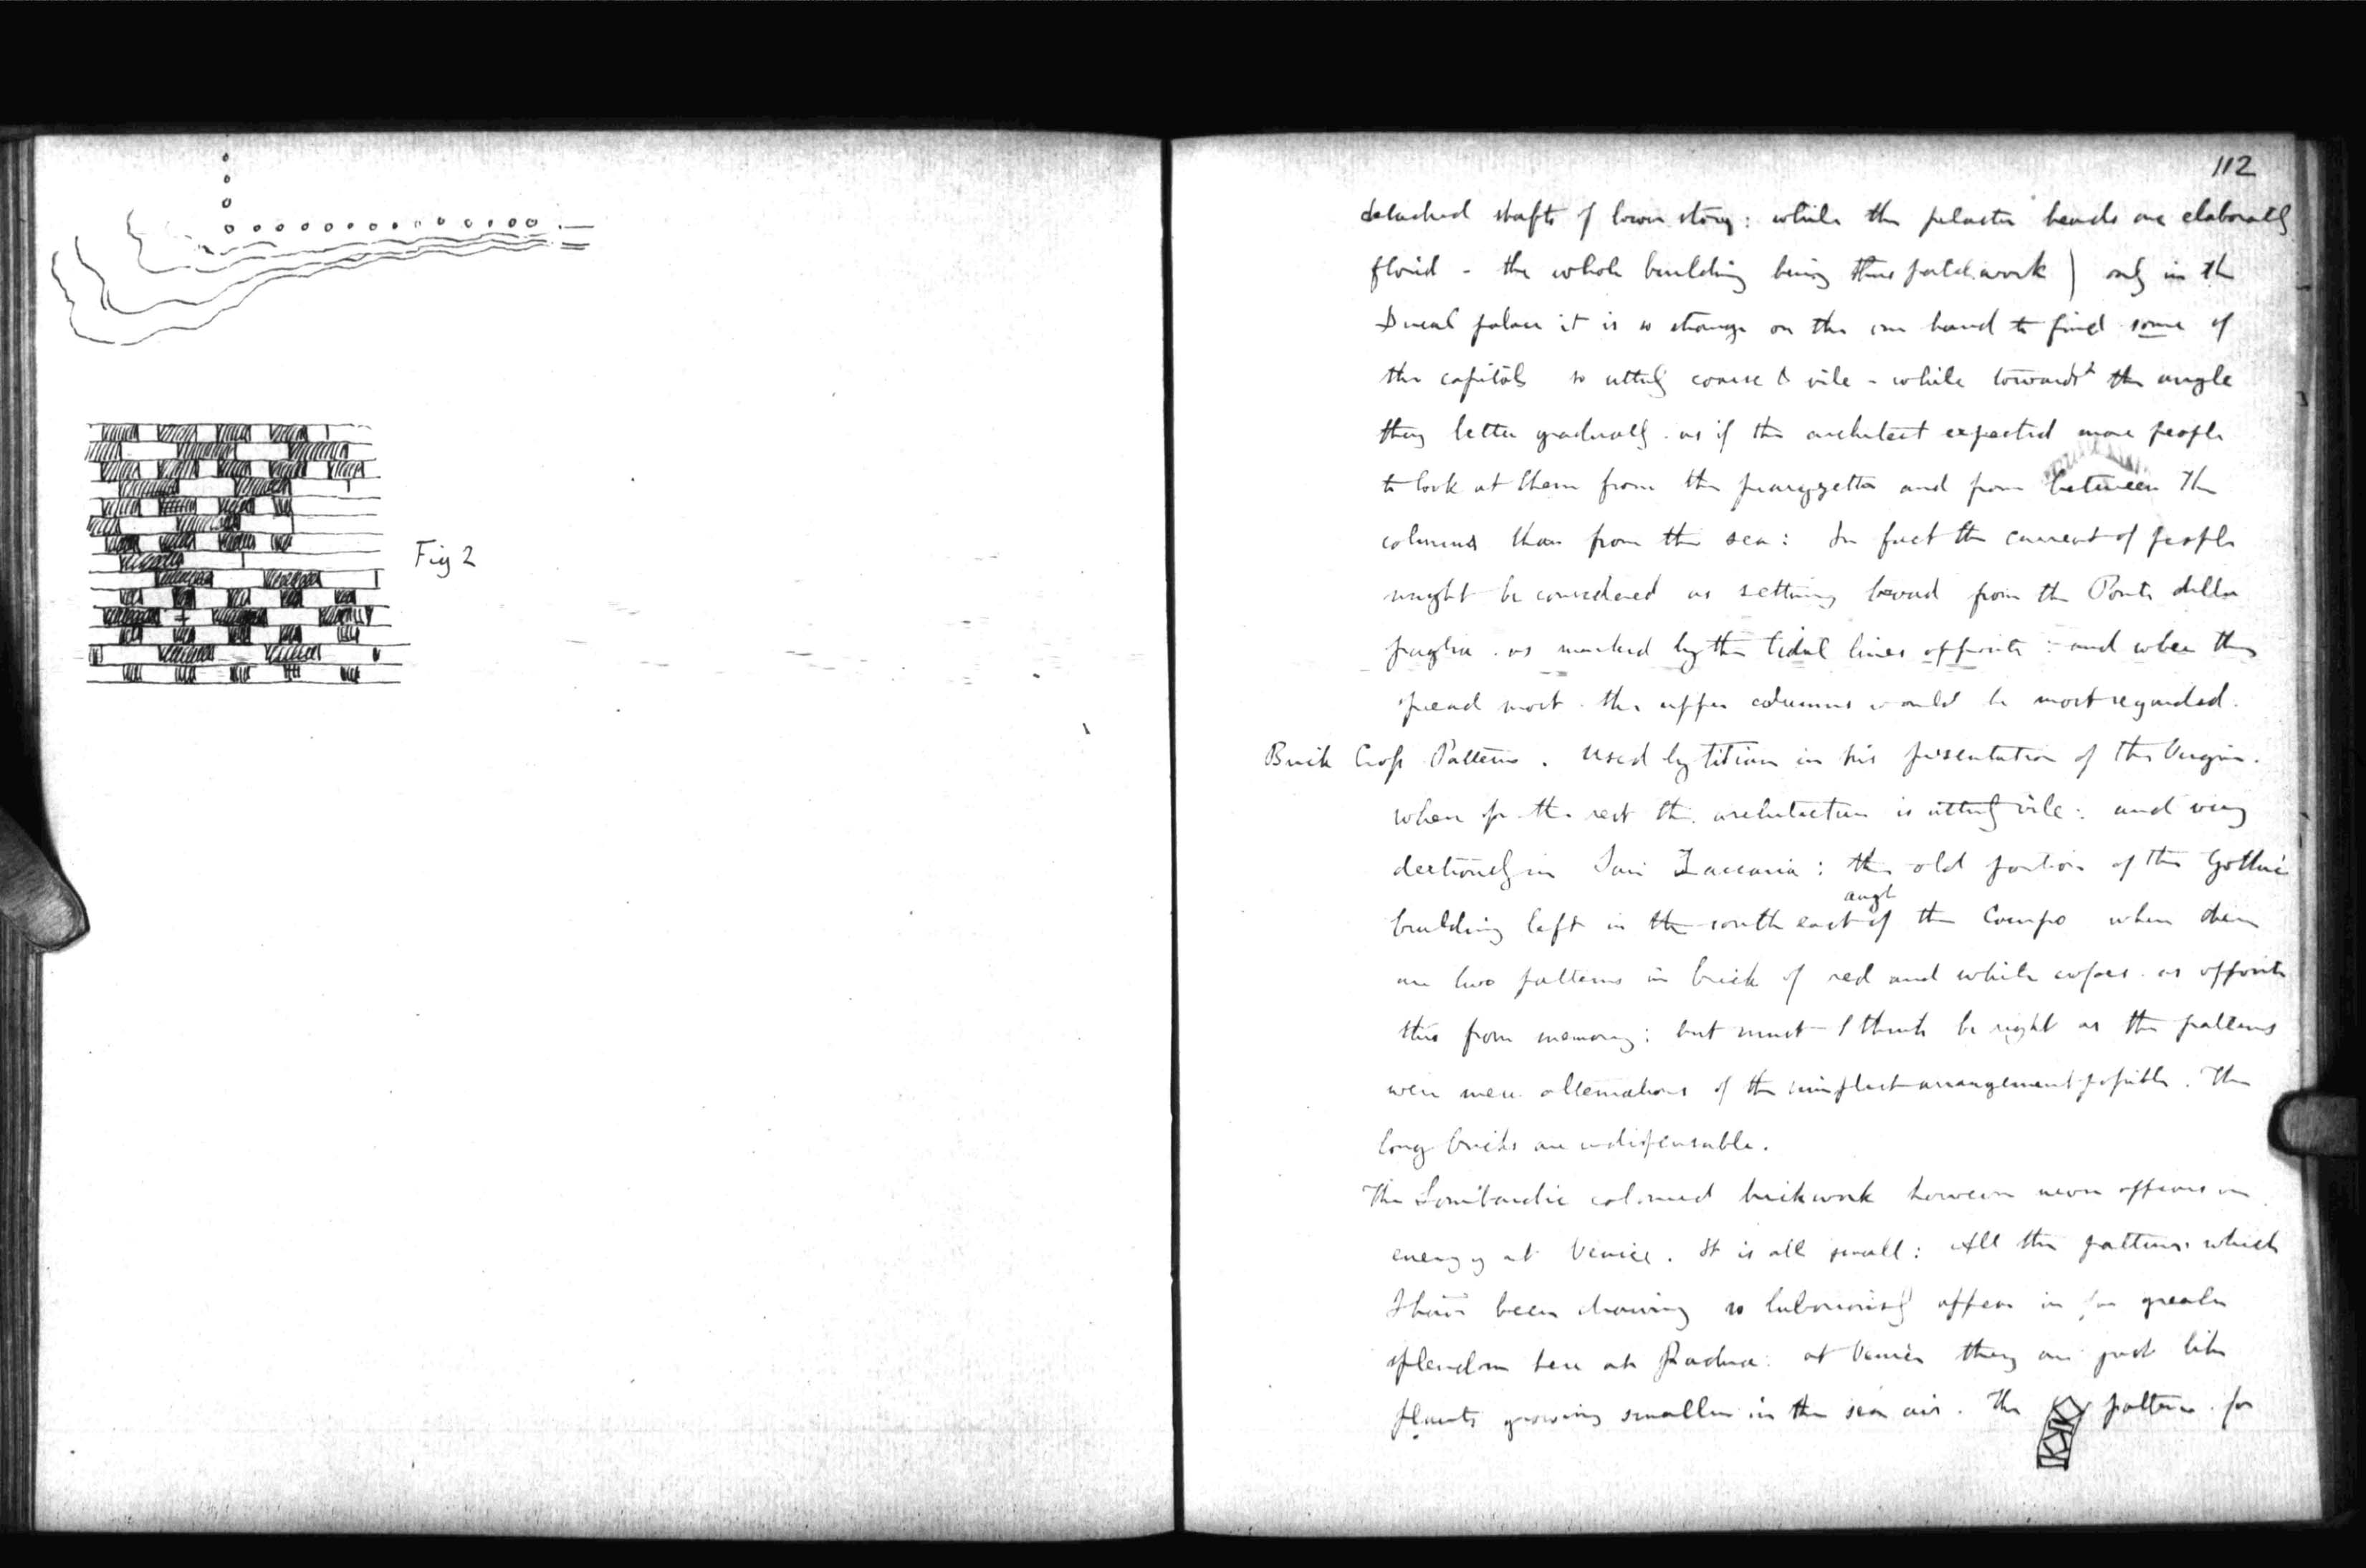 Fig 2
112
detached shafts of lower story: while the pilaster heads are elaborately
florid - the whole building being thus patchwork) only in the
Ducal palace it is so strange on the one hand to find some of
the capitals so utterly coarse & vile - while towards the angle
they better gradually. as if the architect expected more people
to look at them from the piazzetta and from between the
columns than from the sea: In fact the current of people
might be considered as setting broad from the Ponte della
paglia. as marked by the tidal lines opposite: and where they
spread most. the upper columns would be most regarded.
Brick Cross Patterns. Used by titian in his presentation of the Virgin.
where for the rest the architecture is utterly vile: and very
in San Zaccaria: the old portion of the Gothic
building left in the south east angle of the Campo where there
are two patterns in brick of red and white as opposite
this from memory: but must I think be right as the patterns
were mere alternations of the simplest arrangement possible. The
long bricks are indispensable.
The Lombardic coloured brickwork however never appears in
energy at Venice. It is all small: All the patterns which
I have been drawing so laboriously appear in far greater
splendour here at Padua: at Venice they are just like
plants growing smaller in the sea air. The pattern. for